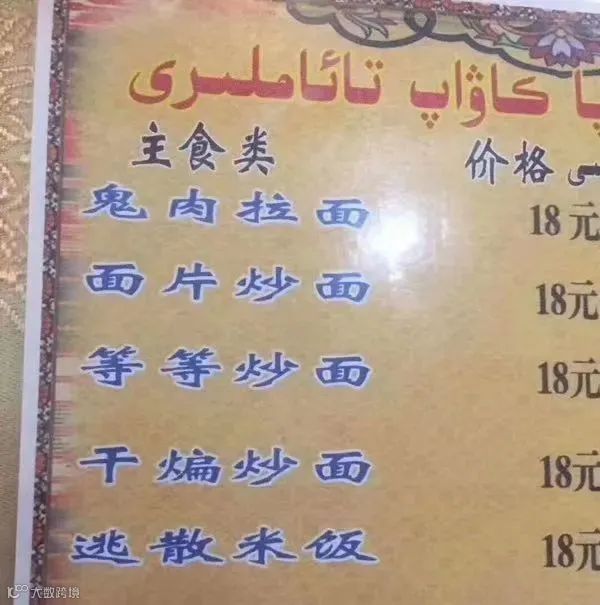 ﺎﭘ ﻛﺎﯞﺍﭖ ﺗﺎﺋﺎﻣﻠﯩﺮﻯ
主食类 价格
鬼肉拉面 18元
面片炒面 18元
等等炒面 18元
干煸炒面 18元
逃散米饭 18元
大数跨境